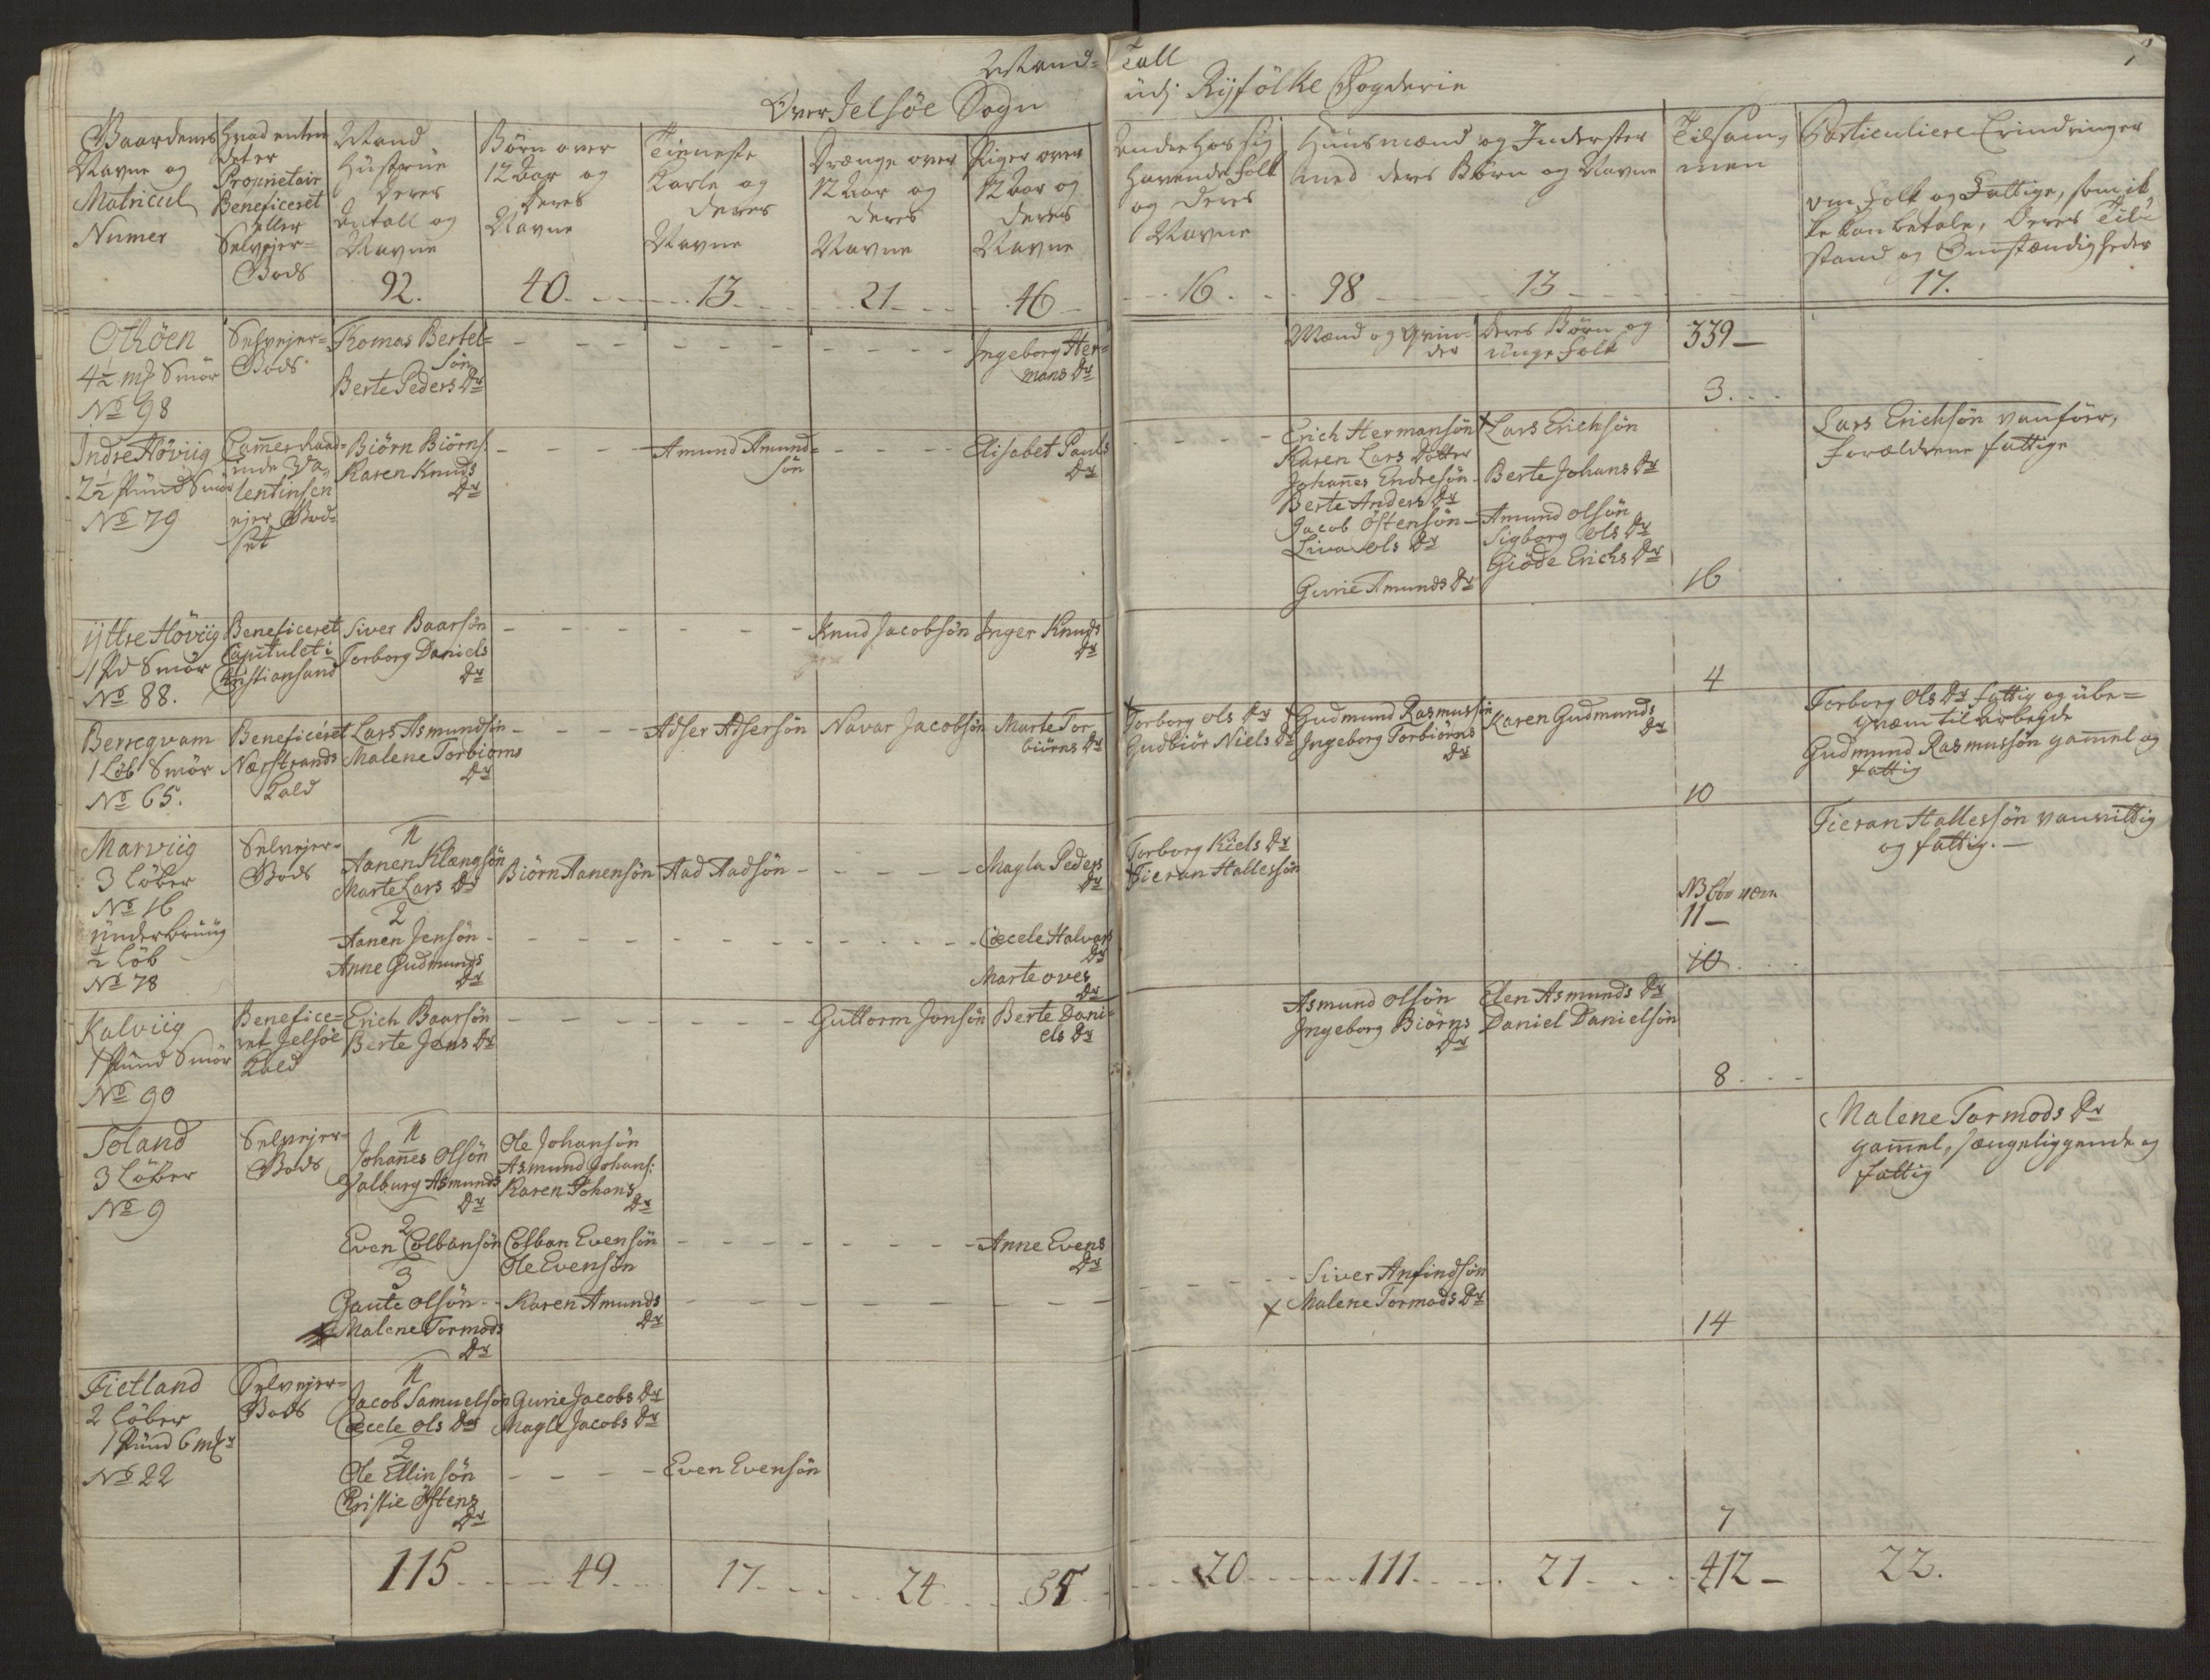 Mand- Tall
Over Jelsøe Sogn udj Ryfølke Fogderie
Gaardenes Navne og Matricul Numer
Hvad enten det er Proprietair Beneficeret eller Selvejer-Gods
Mand Hustrue deres Antall og Navne
Børn over 12 Aar og deres Navne
Tieneste Karle og deres Navne
Drænge over 12 Aar og deres Navne
Piger over 12 Aar og deres Navne
Andre hos sig havende folk og deres Navne
Huusmænd og Inderster med deres Børn og Navne
Tilsammen
Particuliere Erindringer om folk og Fattige, som ikke kan betale, deres Tilstand og Omstændigheder
92. 40. 13 21 46 16 98 13 17.
Mænd og Qvinder
deres Børn og unge folk
339
Othøen
4½ mf Smør
No 98
Selvejer-Gods
Thomas Bertelsøn
Berte Peders Dr
Ingeborg Hermans Dr
3
Indre Høviig
2½ Pund Smør
No 79
Cammerraadinde Valentinsen ejer Godset
Biørn Biørns:
Karen Knuds Dr
Amund Amundsøn
Elisabet Pauls Dr
Erich Hermansøn
Karen Lars Dotter
Johannes Endresøn
Berte Anders Dr
Jacob Østensøn
Liva Ols Dr
Gurie Amunds Dr
x Lars Erichsøn
Berte Johans Dr
Amund Olsøn
Sigborg Ols Dr
Giøde Erichs Dr
16
Lars Erichsøn vanføer,
Forældrene fattige
Yttre Høviig
1 Pd Smør
No 88.
Beneficeret Capitulet i Christiansand
Siver Baarsøn
Torborg Daniels Dr
Knud Jacobsøn
Inger Knuds Dr
4
Berreqvam
1 Løb Smør
No 65.
Beneficeret Nærstrands Kald
Lars Asmundsøn
Malene Torbiørns Dr
Adser Adsersøn
Navar Jacobsøn
Marte Torbiørns Dr
x Torborg Ols Dr
Gudbiør Niels Dr
x Gudmund Rasmussøn
Ingeborg Torbiørns Dr
Karen Gudmunds Dr
10
Torborg Ols Dr fattig og ubeqvæm til arbeyde
Gudmund Rasmussøn gammel og fattig
Marviig
3 Løber
No 16
Underbruug
½ Løb
No 78
Selvejer-Gods
1
Aanen Klængsøn
Marte Lars Dr
2
Aanen Jensøn
Anne Gudmunds Dr
Biørn Aanensøn
Aad Aadsøn
Magla Peders Dr
Cecele Halvors Dr
Marte Oves Dr
Torborg Kiels Dr
x Tieran Hallessøn
NB
11
10
Tieran Hallessøn vanvittig og fattig.
Kalviig
1 Pund Smør
No 90
Beneficeret Jelsøe Kald
Erich Baarsøn
Berte Jens Dr
Guttorm Jonsøn
Berte Daniels Dr
Asmund Olsøn
Ingeborg Biørns Dr
Elen Asmunds Dr
Daniel Danielsøn
8
Toland
3 Løber
No 9
Selvejer-Gods
1
Johannes Olsøn
Valburg Asmunds Dr
2
Even Colbansøn
3
Gaute Olsøn
x Malene Tormods Dr
Ole Johansøn
Asmund Johans:
Karen Johans Dr
Colban Evensøn
Ole Evensøn
Karen Amunds Dr
Anne Evens Dr
Siver Anfindsøn
x Malene Tormods Dr
14
Malene Tormods Dr
gammel, sængeliggende og fattig
Fietland
2 Løber
1 Pund 6 mf
No 22
Selvejer-Gods
1
Jacob Samuelsøn
Cecele Ols Dr
2
Ole Ellinsøn
Christie Østens Dr
Gurie Jacobs Dr
Magle Jacobs Dr
Even Evensøn
7
115 49 17 24 55 20 111 21 412 22.